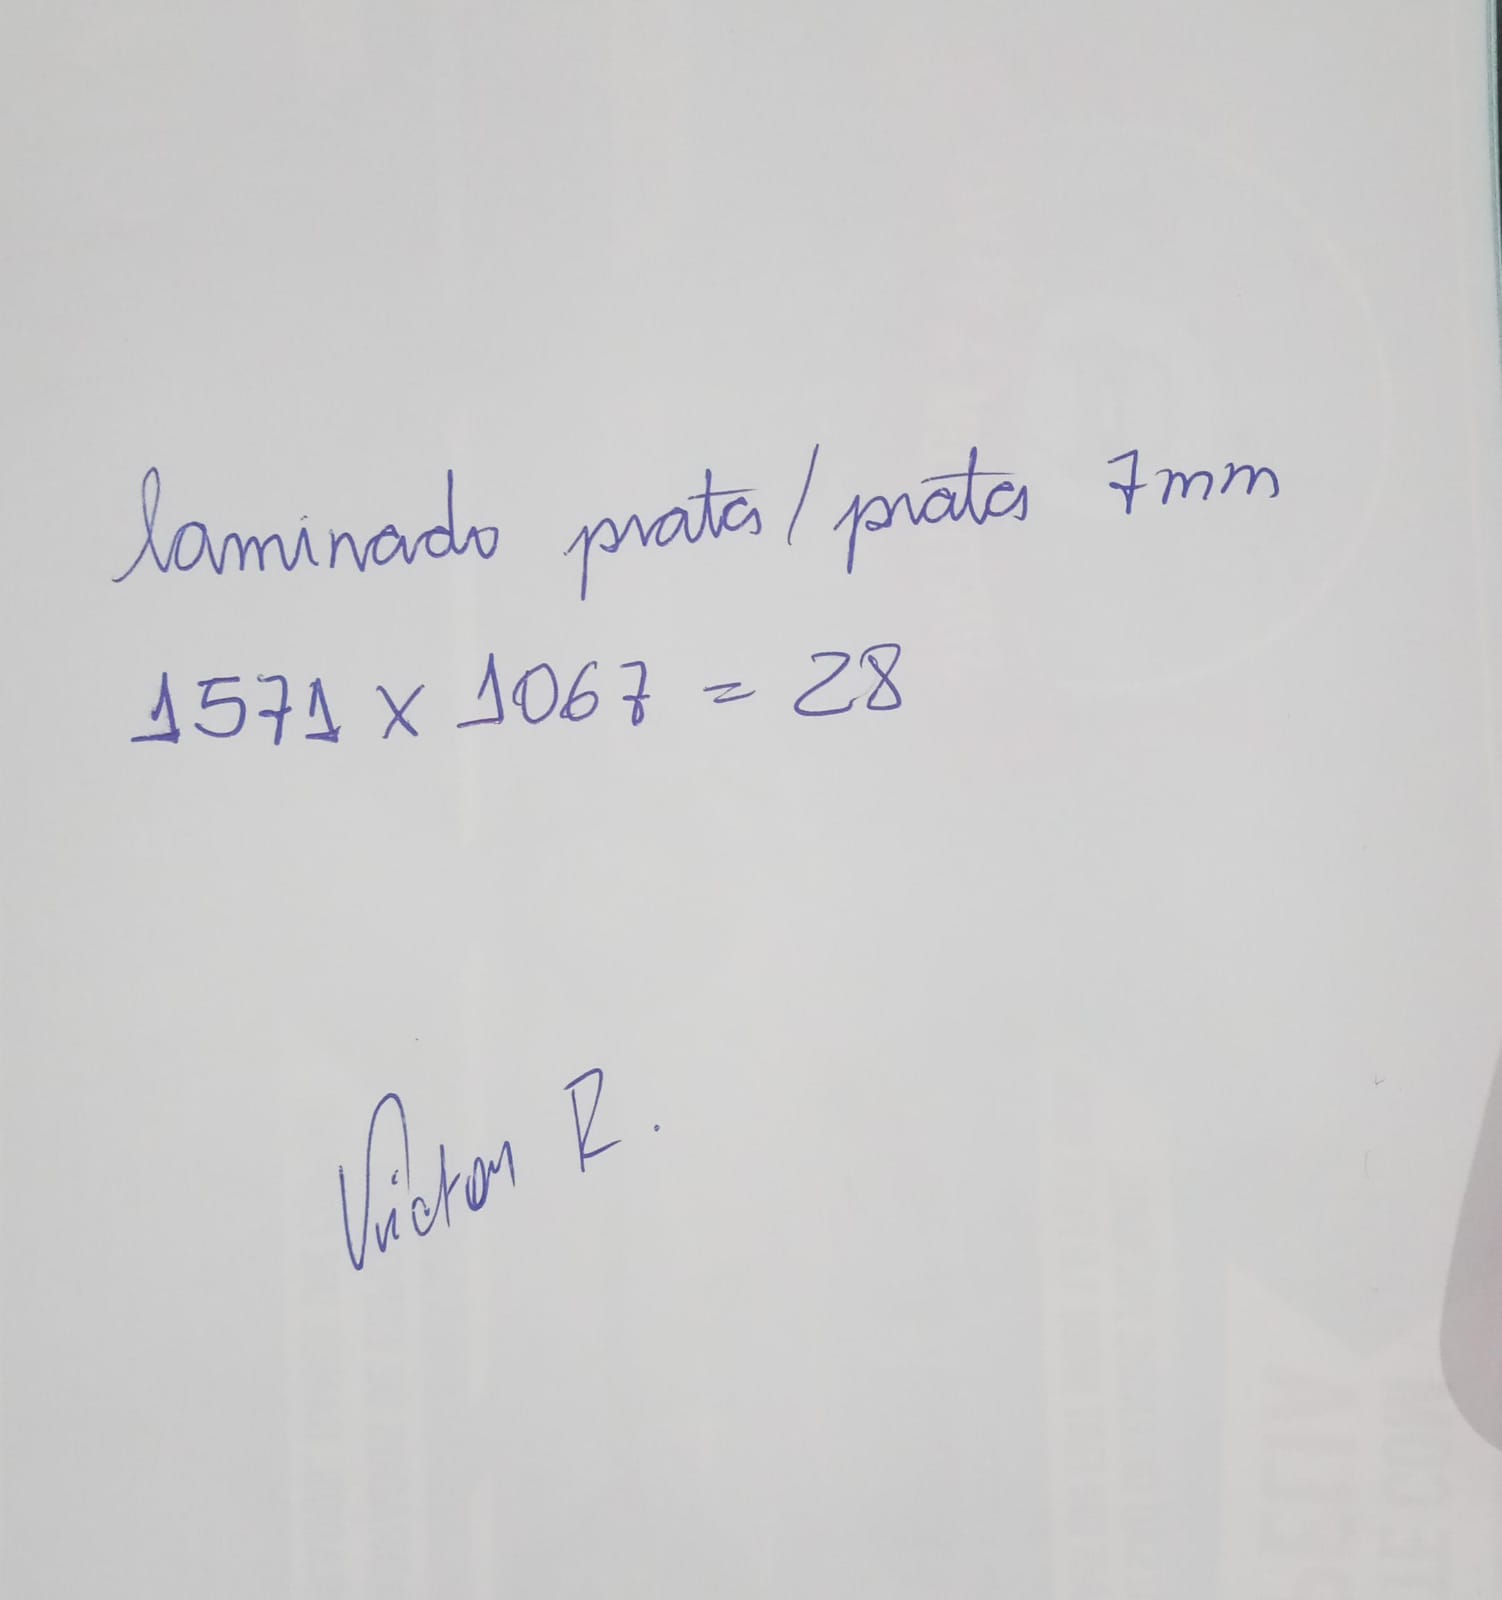 laminado prata/prata 7mm
1571 x 1067 = 28
Victor R.